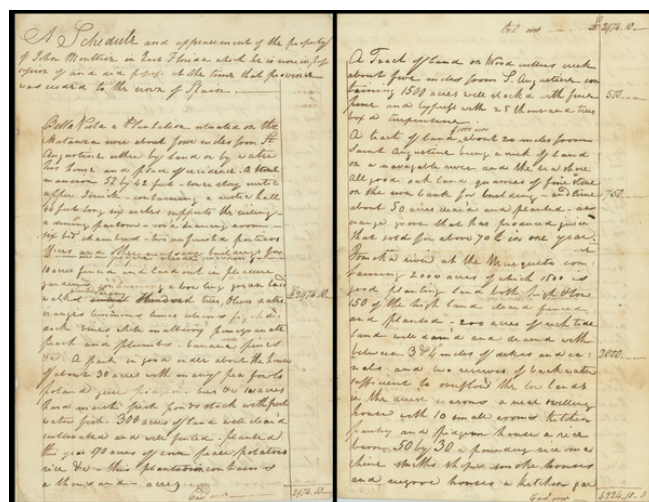 A Schedule and appraisement of the property
of John Moultrie in East Florida which he is now in pos
session of and did possess at the time that province
was ceded to the crown of Spain
Bella Vista a Plantation situated on the
Matanza river about four miles from St
Augustine either by land or by water
his home and place of residence. A stone
mansion 52 by 42 feet
upper containing a hall
feet long six supports the
a dining parlour drawing room
six bed chambers two unfinished porticos
10 acres fenced and laid out in pleasure
gardens a bowling green
walks trees, Olives dates
oranges lemons limes citrons figs
vines white mulberry pomgranate
peach and plumbs banana pines
&c A park in good order about the house
of about 30 acres with many pea fowls
poland geese pidgeons &c 10 acres
hard marsh fish ponds stock with fresh
water fish 300 acres of land well clear'd
cultivated and well fenced planted
this year 170 acres of corn pease potatoes
rice &c this plantation contains
a thousand acres
£2974.10
2974.10
Brot. over £ 2974.10
A Tract of land on Wood cutters creek
about five miles from St. Augustine con
taining 1500 acres well stocked with fine
pine and cypress with 25 thousand trees
box'd turpentine
500
A tract of land about 20 miles from
Saint Augustine being a neck of land
on a navagable river and the sea shore
all good oak land quaries of fine stone
on the river bank for building and lime
about 50 acres clear'd and planted an
orange grove that has produced juice
that sold for above 70£ in one year
750
at the Musqueto con
taining 2000 acres of which 1500 is
good planting land both high & low
150 of the high land clear'd fenced
and planted 200 acres of rich tide
land well dam'd and drain'd with
between 3 & 4 miles of dikes and ca
nals and two reserves of back water
sufficient to overflow the low lands
in the driest seasons a neat dwelling
house with 10 small rooms kitchen
pantry and pidgeon house a rice
barn 50 by 30 a pounding rice ma
chine smiths shop smoke houses
and negroe houses a kitchen gar
2000
6224.10